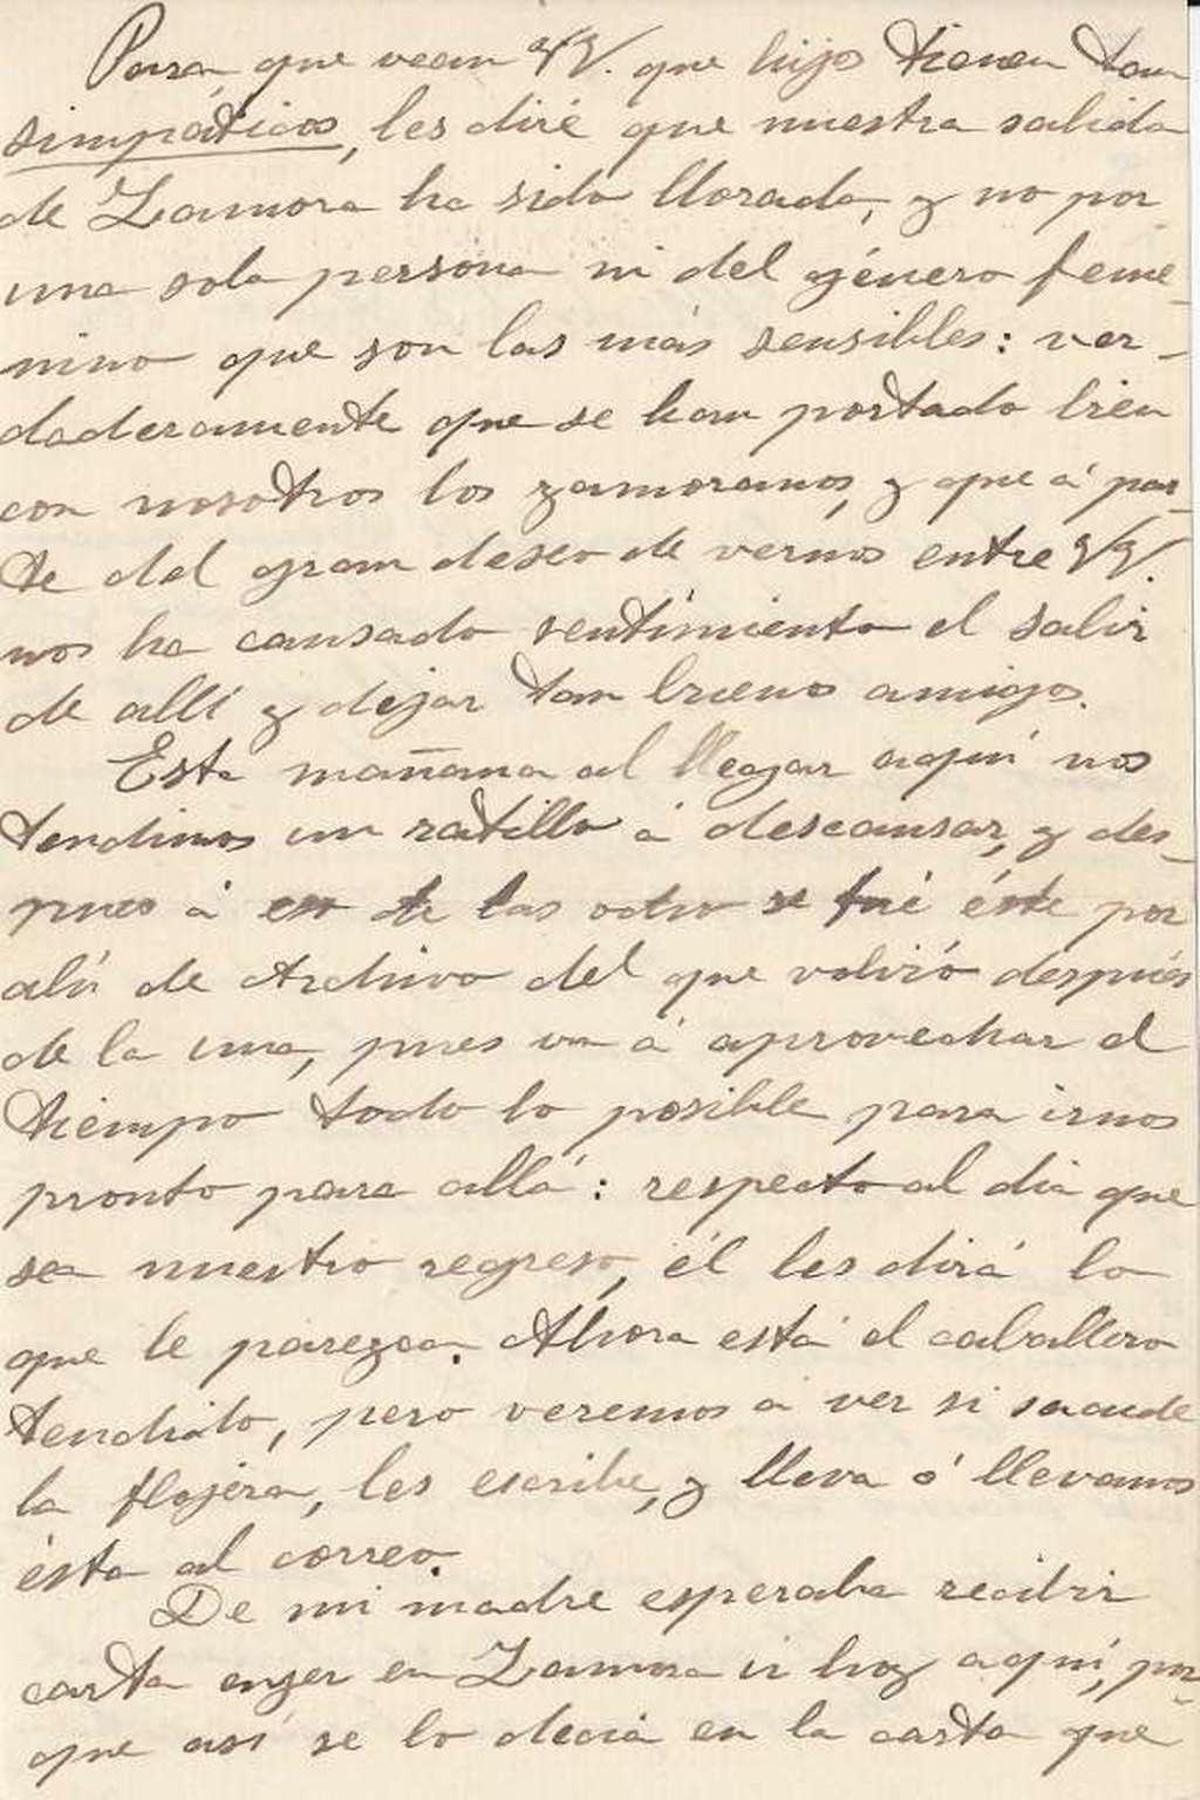 Para que vean VV. que hijos tienen tan
simpáticos, les diré que nuestra salida
de Zamora ha sido llorada, y no por
una sola persona ni del género feme-
nino que son las más sensibles: ver-
daderamente que se han portado bien
con nosotros los zamoranos, y que á par-
te del gran deseo de vernos entre VV.
nos ha causado sentimiento el salir
de allí y dejar tan buenos amigos.
Esta mañana al llegar aquí nos
tendimos un ratillo á descansar, y des-
pues á eso de las ocho se fué éste por
ahí de Archivo del que volvió después
de la una, pues va á aprovechar el
tiempo todo lo posible para irnos
pronto para allá: respecto al dia que
sea nuestro regreso, él les dirá lo
que le parezca. Ahora está el caballero
tendido, pero veremos á ver si sacude
la flojera, les escribe, y lleva ó llevamos
ésta al correo.
De mi madre esperaba recibir
carta en Zamora ú hoy aquí, por-
que así se lo decia en la carta que